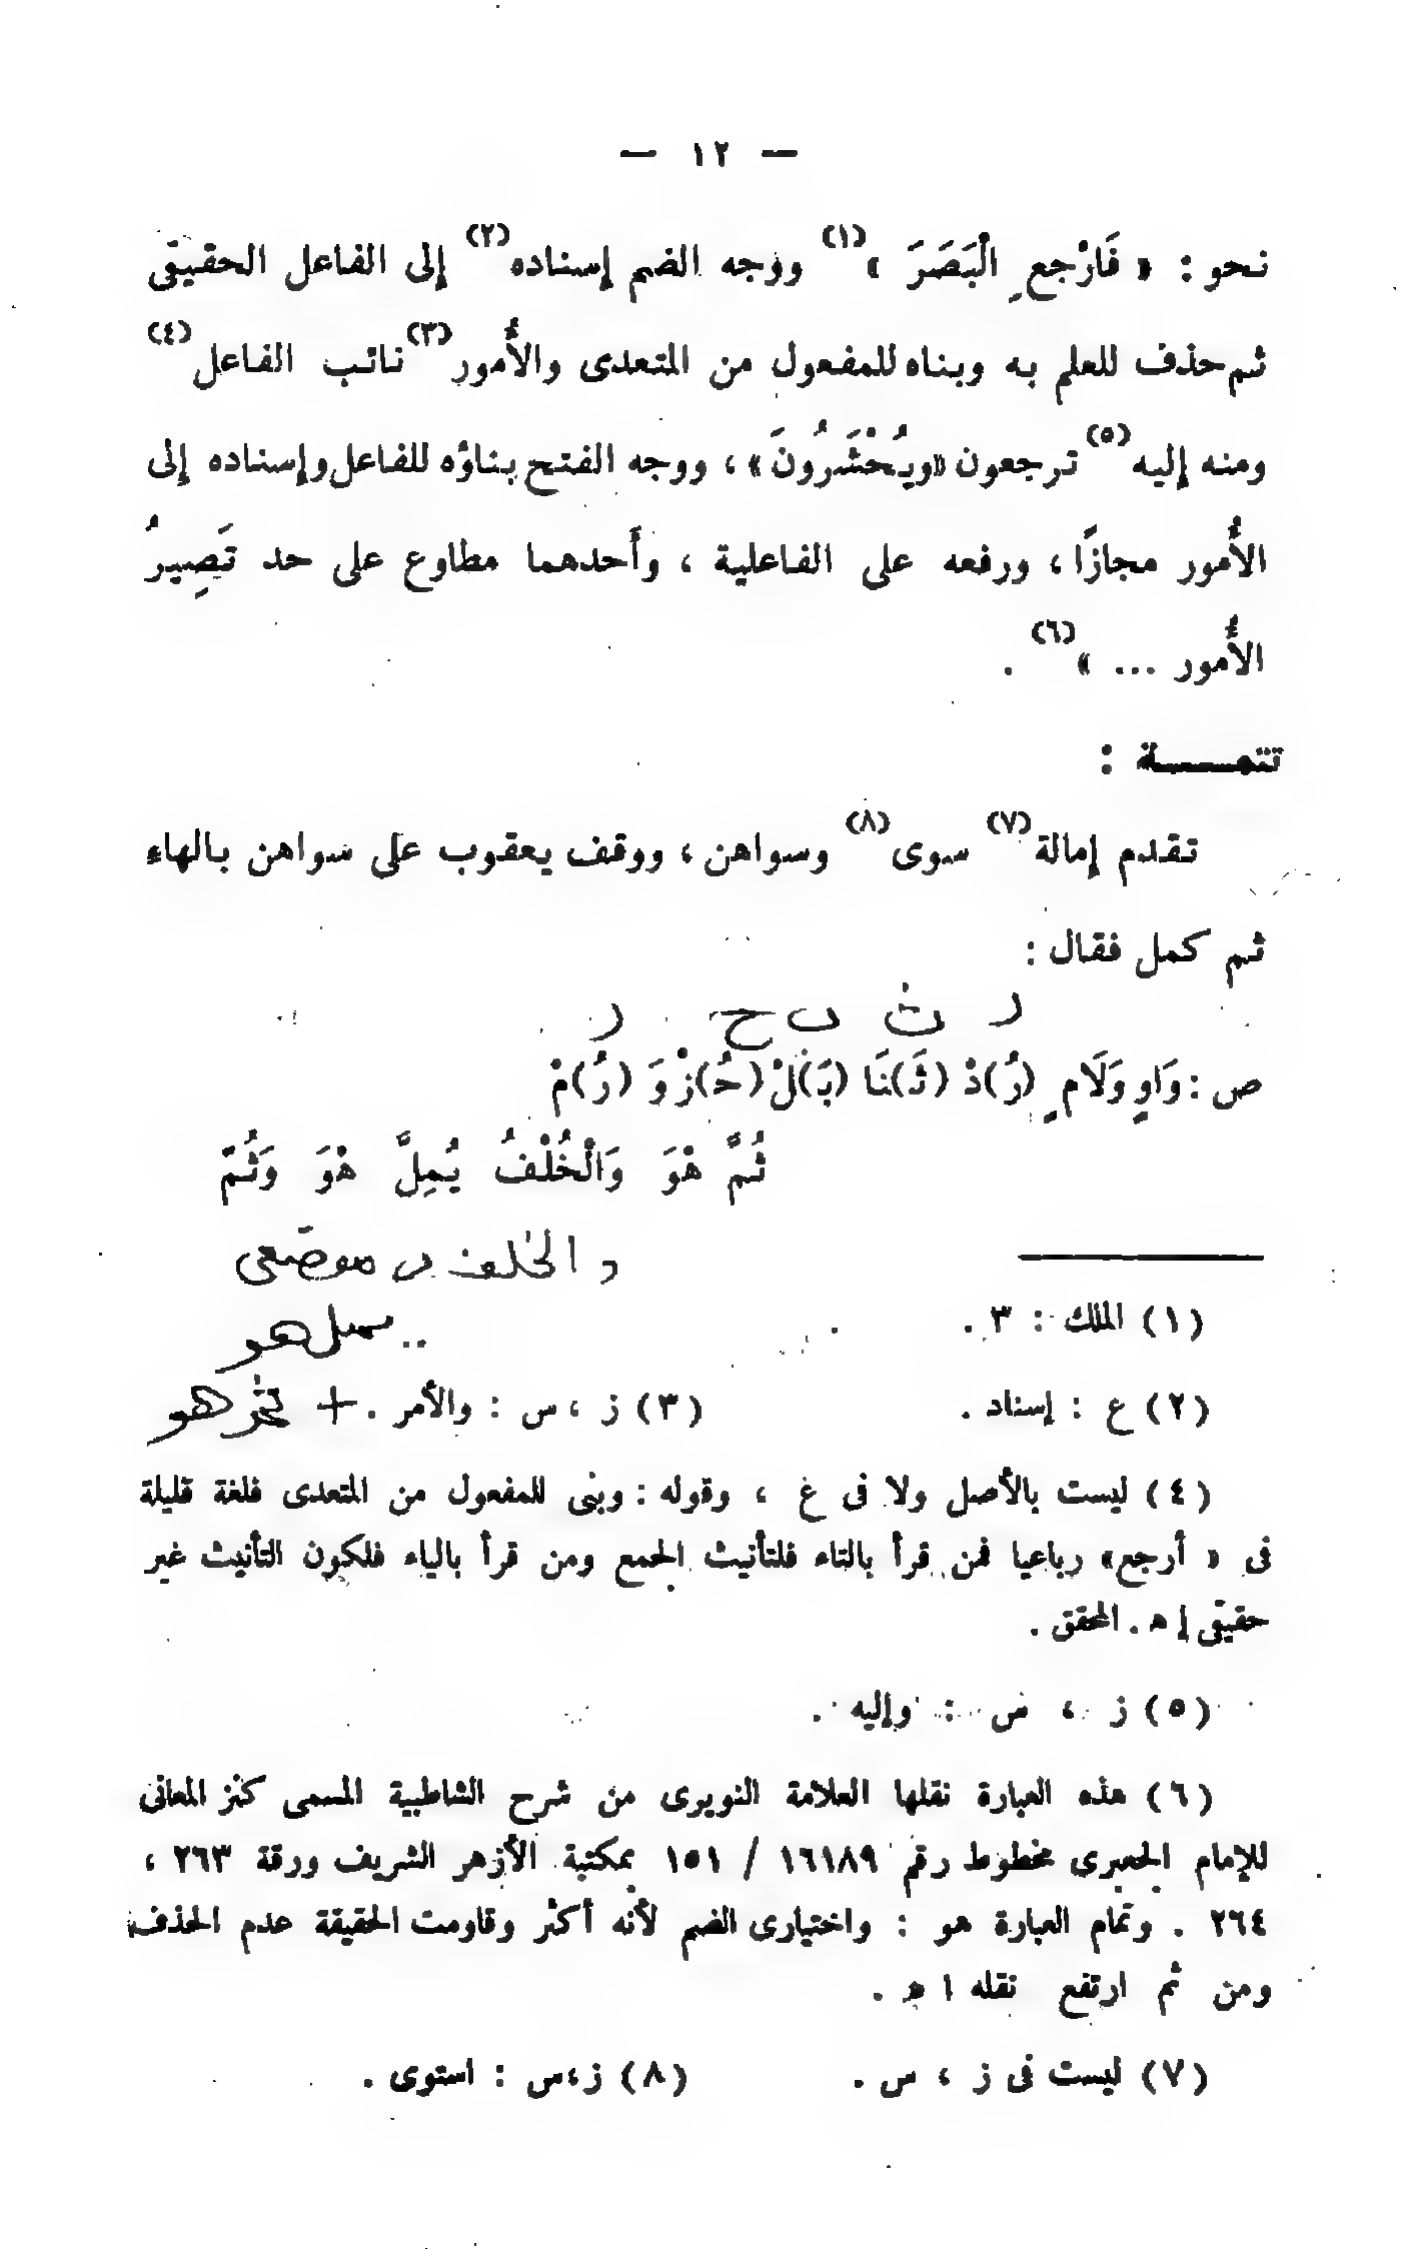 — ١٢ —
نحو : « فَارْجعِ الْبَصَرَ »(١) ووجه الضم إسناده(٢) إلى الفاعل الحقيقى
ثم حذف للعلم به وبناه للمفعول من المتعدى والأُمور(٣) نائب الفاعل(٤)
ومنه إليه(٥) ترجعون «ويُحْشَرُونَ» ، ووجه الفتح بناؤه للفاعل وإسناده إلى
الأُمور مجازًا ، ورفعه على الفاعلية ، وأَحدهما مطاوع على حد تَصِيرُ
الأُمور ... »(٦) .
تتمـــــة :
تقدم إمالة(٧) سوى(٨) وسواهن ، ووقف يعقوب على سواهن بالهاء
ثم كمل فقال :
ر ث ب ح ر
ص : وَاوٍ وَلَامٍ (رُ)دْ (ثَ)نَا (بَ)لْ (حُ)زْ وَ (رُ)مْ
ثُمَّ هْوَ وَالْخُلْفُ يُمِلَّ هْوَ وَثُمّ
والخلف بر موضعى
(١) الملك : ٣ .
.. يمل هو
(٢) ع : إسناد . (٣) ز ، س : والأمر . + ثم هو
(٤) ليست بالأصل ولا فى غ ، وقوله : وبنى للمفعول من المتعدى فلغة قليلة
فى « أرجع» رباعيا فمن قرأ بالتاء فلتأنيث الجمع ومن قرأ بالياء فلكون التأنيث غير
حقيقى إ ه . المحقق .
(٥) ز ، س : وإليه .
(٦) هذه العبارة نقلها العلامة النويرى من شرح الشاطبية المسمى كنز المعانى
للإمام الجعبرى مخطوط رقم ١٦١٨٩ / ١٥١ بمكتبة الأزهر الشريف ورقة ٢٦٣ ،
٢٦٤ . وتمام العبارة هو : واختيارى الضم لأنه أكثر وقاومت الحقيقة عدم الحذف
ومن ثم ارتفع نقله ا ه .
(٧) ليست فى ز ، س . (٨) ز ،س : استوى .